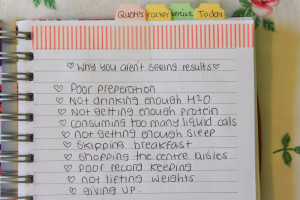 Quotes Tracker invoice Today
♡ Why you aren't seeing results ♡
♡ Poor preperation
♡ Not drinking enough H2O
♡ Not getting enough protein
♡ consuming too many liquid cals
♡ not getting enough sleep
♡ Skipping breakfast
♡ shopping the centre aisles
♡ poor record keeping
♡ not lifting weights
♡ giving up